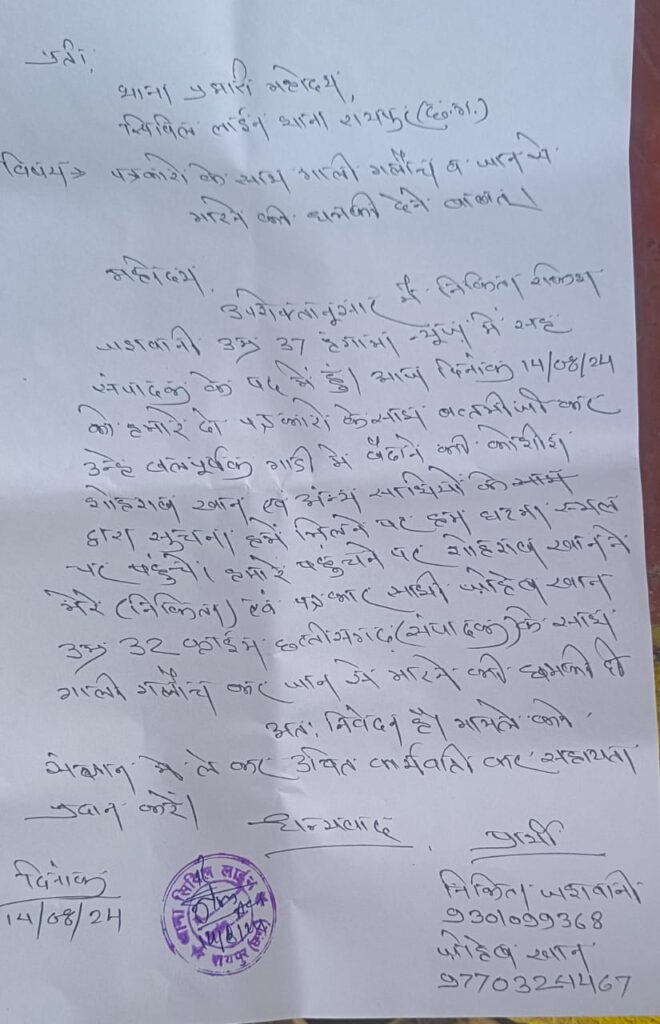 प्रती,
थाना प्रभारी महोदय,
सिविल लाईन थाना रायपुर (छ.ग.)
विषय→ पत्रकारो के साथ गाली गलौच व जान से
मारने की धमकी देने बाबत।
महोदय,
उपरोक्तानुसार मैं निकिता
जशवानी उम्र 37 हंगामा न्यूज में सह
संपादक के पद में हूँ। आज दिनांक 14/08/24
को हमारे दो पत्रकारो के साथ बत्तमीजी कर
उन्हे बलपूर्वक गाडी मे बैठाने की कोशीश
शोहराब खान एवं अन्य साथियों के साथ
द्वारा सुचना हमें मिलने पर हम घटना स्थल
पर पहुंचे। हमारे पहुंचने पर शोहराब खान ने
मेरे (निकिता) एवं पत्रकार साथी जोहेब खान
उम्र 32 क्राईम छत्तीसगढ (संपादक) के साथ
गाली गलौच कर जान से मारने की धमकी दी
अतः निवेदन है। मामले को
संज्ञान मे ले कर उचित कार्यवाही कर सहायता
प्रदान करें।
धन्यवाद
प्रार्थी
दिनांक
14/08/24
निकिता जशवानी
9301099368
जोहेब खान
थाना सिविल लाईन
रायपुर (छ.ग.)